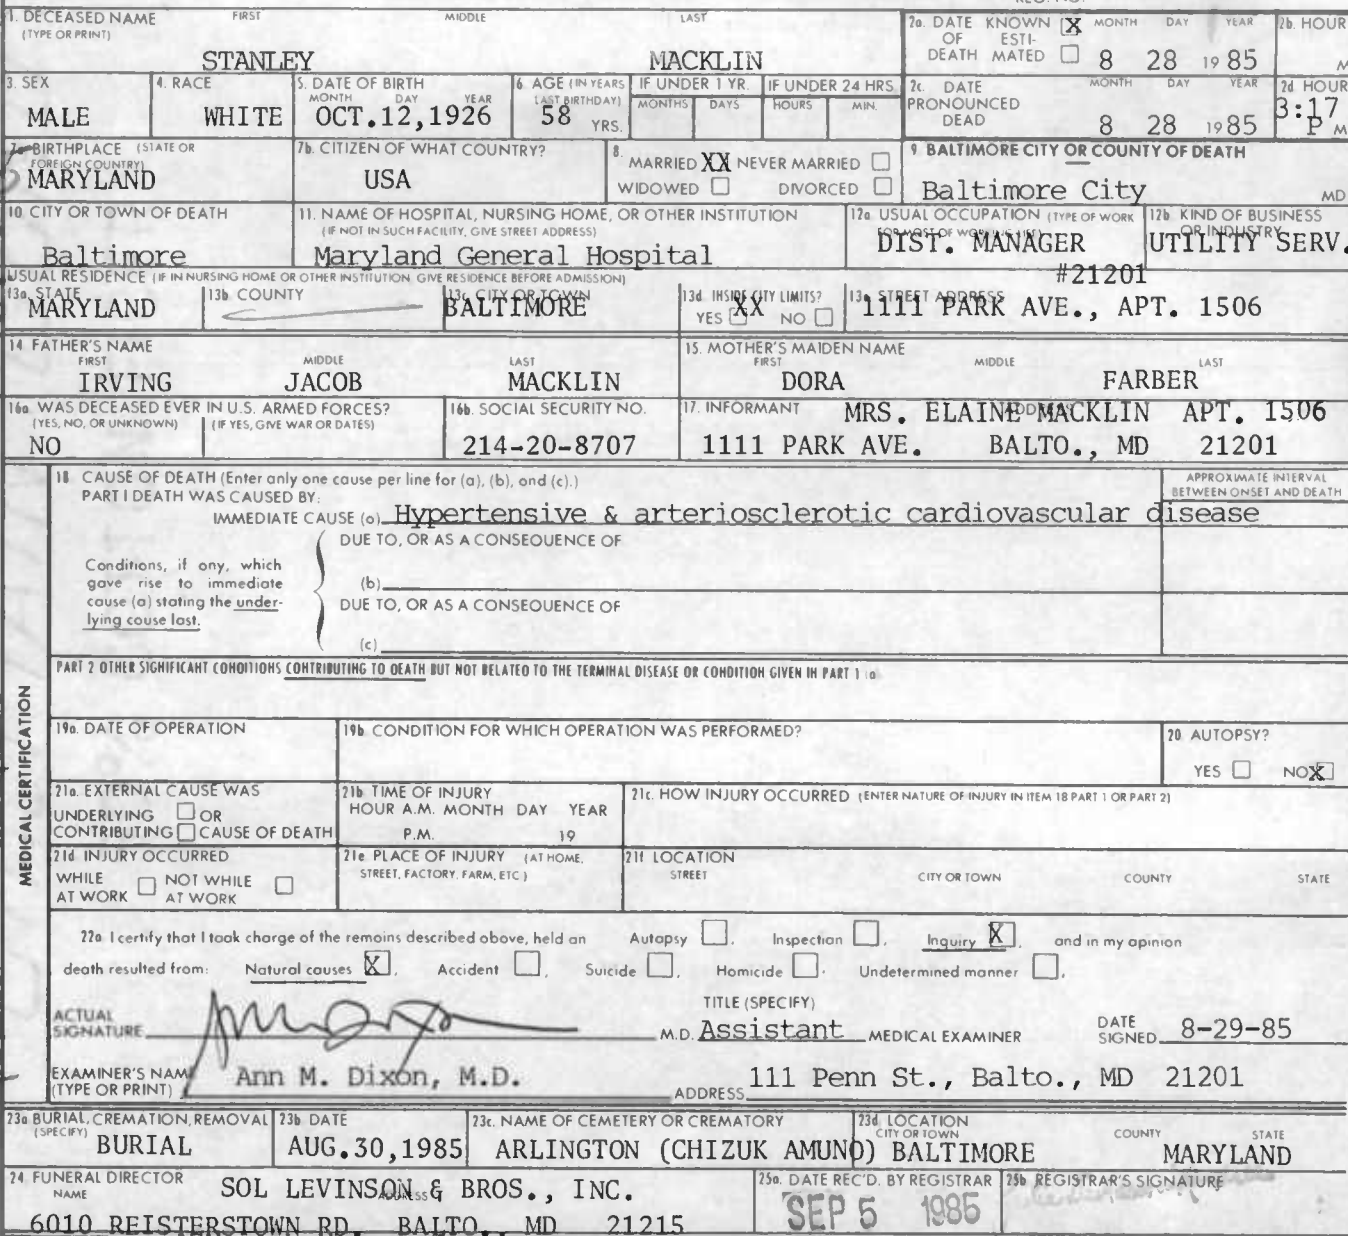 1. DECEASED NAME FIRST MIDDLE LAST
(TYPE OR PRINT)
STANLEY MACKLIN
2a. DATE KNOWN X MONTH DAY YEAR
OF ESTI-
DEATH MATED 8 28 1985
2b. HOUR
M
3. SEX
MALE
4. RACE
WHITE
5. DATE OF BIRTH
MONTH DAY YEAR
OCT.12,1926
6. AGE (IN YEARS
LAST BIRTHDAY)
58 YRS.
IF UNDER 1 YR.
MONTHS DAYS
IF UNDER 24 HRS
HOURS MIN.
2c. DATE MONTH DAY YEAR
PRONOUNCED
DEAD 8 28 1985
2d HOUR
3:17
P M
BIRTHPLACE (STATE OR
FOREIGN COUNTRY)
MARYLAND
7b. CITIZEN OF WHAT COUNTRY?
USA
8.
MARRIED XX NEVER MARRIED
WIDOWED DIVORCED
9. BALTIMORE CITY OR COUNTY OF DEATH
Baltimore City MD
10. CITY OR TOWN OF DEATH
Baltimore
11. NAME OF HOSPITAL, NURSING HOME, OR OTHER INSTITUTION
(IF NOT IN SUCH FACILITY, GIVE STREET ADDRESS)
Maryland General Hospital
12a. USUAL OCCUPATION (TYPE OF WORK
FOR MOST OF WORKING LIFE)
DIST. MANAGER
12b. KIND OF BUSINESS
OR INDUSTRY
UTILITY SERV.
USUAL RESIDENCE (IF IN NURSING HOME OR OTHER INSTITUTION, GIVE RESIDENCE BEFORE ADMISSION)
#21201
13a. STATE
MARYLAND
13b. COUNTY
13c. CITY OR TOWN
BALTIMORE
13d. INSIDE CITY LIMITS?
YES XX NO
13e. STREET ADDRESS
1111 PARK AVE., APT. 1506
14. FATHER'S NAME
FIRST MIDDLE LAST
IRVING JACOB MACKLIN
15. MOTHER'S MAIDEN NAME
FIRST MIDDLE LAST
DORA FARBER
16a. WAS DECEASED EVER IN U.S. ARMED FORCES?
(YES, NO, OR UNKNOWN) (IF YES, GIVE WAR OR DATES)
NO
16b. SOCIAL SECURITY NO.
214-20-8707
17. INFORMANT MRS. ELAINE MACKLIN APT. 1506
1111 PARK AVE. BALTO., MD 21201
MEDICAL CERTIFICATION
18. CAUSE OF DEATH (Enter only one cause per line for (a), (b), and (c).)
PART I DEATH WAS CAUSED BY:
APPROXIMATE INTERVAL
BETWEEN ONSET AND DEATH
IMMEDIATE CAUSE (a) Hypertensive & arteriosclerotic cardiovascular disease
DUE TO, OR AS A CONSEQUENCE OF
Conditions, if any, which
gave rise to immediate
cause (a) stating the under-
lying cause last.
(b)
DUE TO, OR AS A CONSEQUENCE OF
(c)
PART 2 OTHER SIGNIFICANT CONDITIONS CONTRIBUTING TO DEATH BUT NOT RELATED TO THE TERMINAL DISEASE OR CONDITION GIVEN IN PART 1 (a)
19a. DATE OF OPERATION
19b. CONDITION FOR WHICH OPERATION WAS PERFORMED?
20. AUTOPSY?
YES NO X
21a. EXTERNAL CAUSE WAS
UNDERLYING OR
CONTRIBUTING CAUSE OF DEATH
21b. TIME OF INJURY
HOUR A.M. MONTH DAY YEAR
P.M. 19
21c. HOW INJURY OCCURRED (ENTER NATURE OF INJURY IN ITEM 18 PART 1 OR PART 2)
21d. INJURY OCCURRED
WHILE AT WORK NOT WHILE AT WORK
21e. PLACE OF INJURY (AT HOME,
STREET, FACTORY, FARM, ETC.)
21f. LOCATION
STREET CITY OR TOWN COUNTY STATE
22a. I certify that I took charge of the remains described above, held an Autopsy , Inspection , Inquiry X , and in my opinion
death resulted from: Natural causes X , Accident , Suicide , Homicide , Undetermined manner ,
ACTUAL
SIGNATURE
TITLE (SPECIFY)
M.D. Assistant MEDICAL EXAMINER
DATE
SIGNED 8-29-85
EXAMINER'S NAME
(TYPE OR PRINT) Ann M. Dixon, M.D.
ADDRESS 111 Penn St., Balto., MD 21201
23a. BURIAL, CREMATION, REMOVAL
(SPECIFY)
BURIAL
23b. DATE
AUG.30,1985
23c. NAME OF CEMETERY OR CREMATORY
ARLINGTON (CHIZUK AMUNO)
23d. LOCATION
CITY OR TOWN COUNTY STATE
BALTIMORE MARYLAND
24. FUNERAL DIRECTOR
NAME ADDRESS
SOL LEVINSON & BROS., INC.
6010 REISTERSTOWN RD. BALTO., MD 21215
25a. DATE REC'D. BY REGISTRAR
SEP 5 1985
25b. REGISTRAR'S SIGNATURE